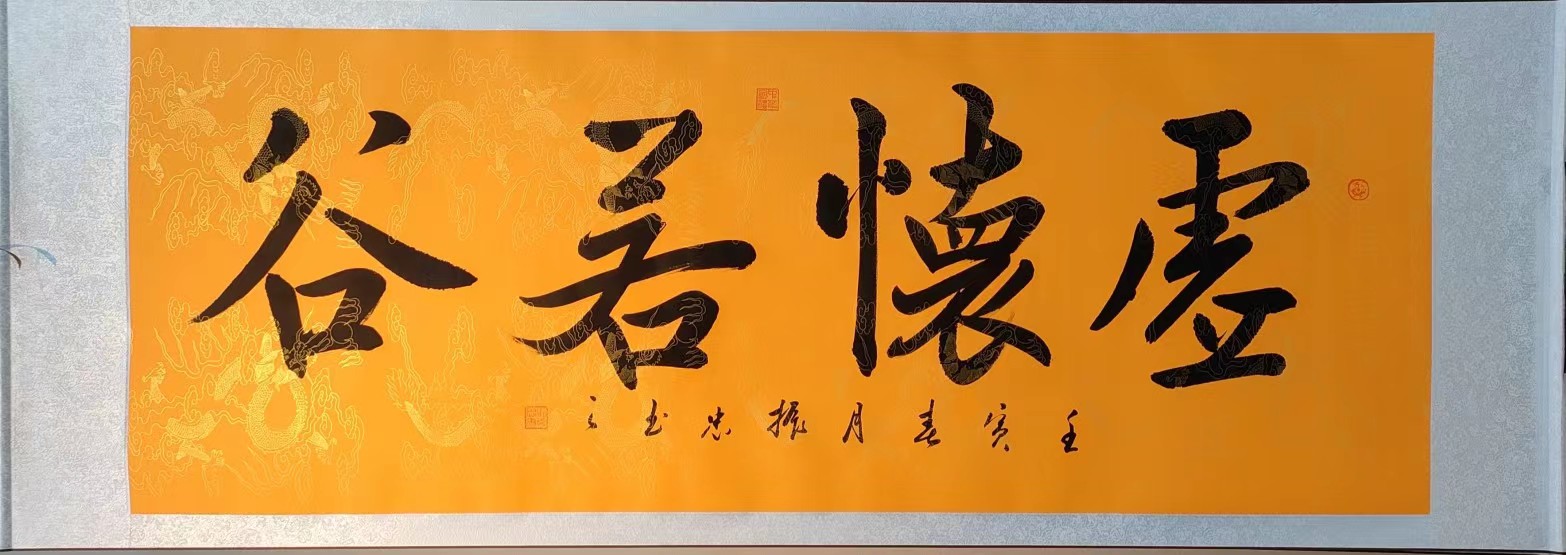 虚懷若谷
壬寅春月振忠书之